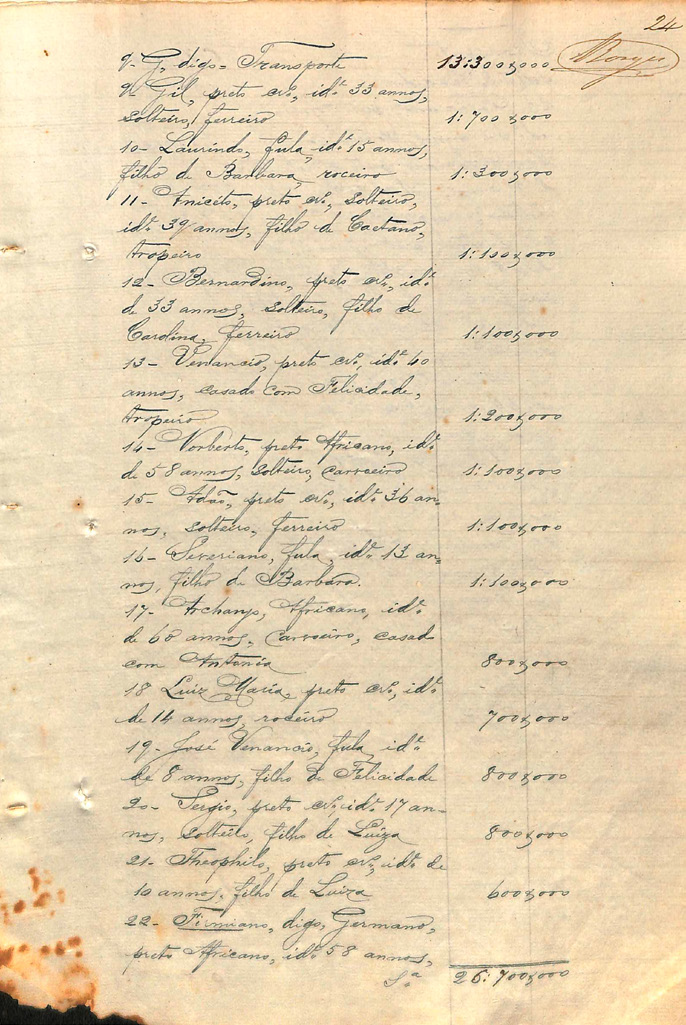 24
9- G, digo - Transporte 13:300$000 Borges
9- Gil, preto crº, idº 33 annos,
solteiro, ferreiro 1:700$000
10- Laurindo, fula, idº 15 annos,
filho de Barbara, roceiro 1:300$000
11- Aniceto, preto crº, solteiro,
idº 39 annos, filho de Caetano,
tropeiro 1:100$000
12- Bernardino, preto crº, idº
de 33 annos, solteiro, filho de
Carolina, ferreiro 1:100$000
13- Venancio, preto crº, idº 40
annos, casado com Felicidade,
tropeiro 1:200$000
14- Norberto, preto Africano, idº
de 58 annos, solteiro, carroeiro 1:100$000
15- Adão, preto crº, idº 36 an-
nos, solteiro, ferreiro 1:100$000
16- Severiano, fula, idº 13 an-
nos, filho de Barbara. 1:100$000
17- Archanjo, Africano, idº
de 60 annos, carroeiro, casado
com Antonia 800$000
18 Luiz Maria, preto crº, idº
de 14 annos, roceiro 700$000
19- José Venancio, fula, idº
de 8 annos, filho de Felicidade 800$000
20- Sergio, preto crº, idº 17 an-
nos, solteiro, filho de Luiza 800$000
21- Theophilo, preto crº, idº de
10 annos, filho de Luiza 600$000
22- Firmiano, digo, Germano,
preto Africano, idº 58 annos,
Sª 26:700$000